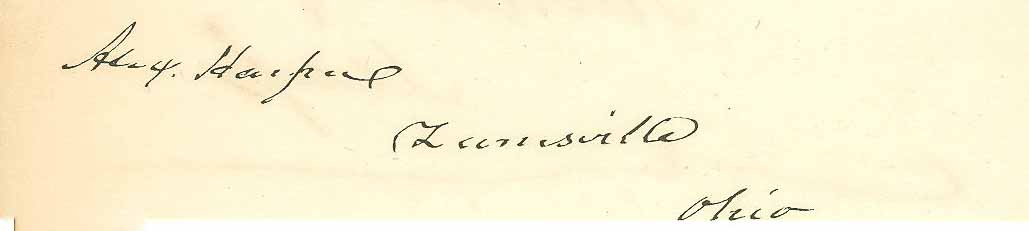 Alex. Harper
Zanesville
Ohio